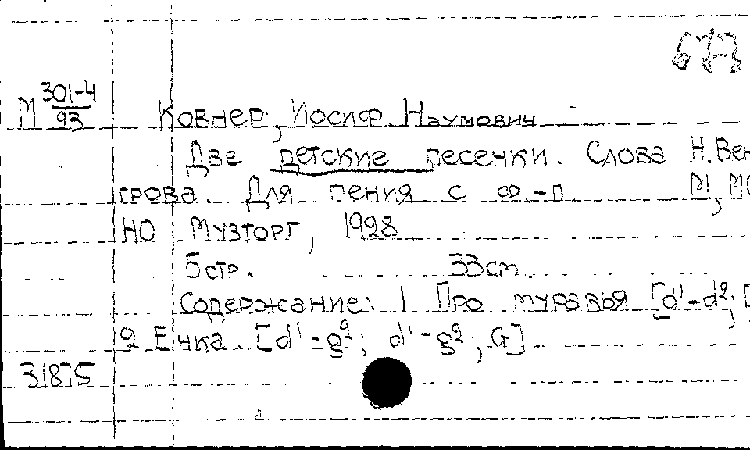 М 301-4/93
Ковнер, Иосиф Наумович
Две детские песенки. Слова Н. Вен-
грова. Для пения с ф-п. М,
НО Музторг, 1928
5 стр. 33 см
Содержание: 1 Про муравья [d¹-d²;
2 Ечка [d¹-g²; d¹-g², G]
31875